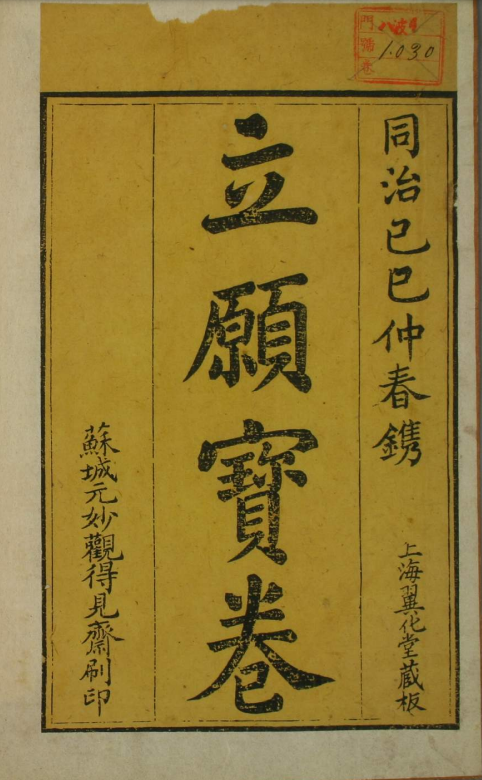 同治己巳仲春鐫
上海翼化堂藏板
立願寶卷
蘇城元妙觀得見齋刷印
門
號
卷
1.030